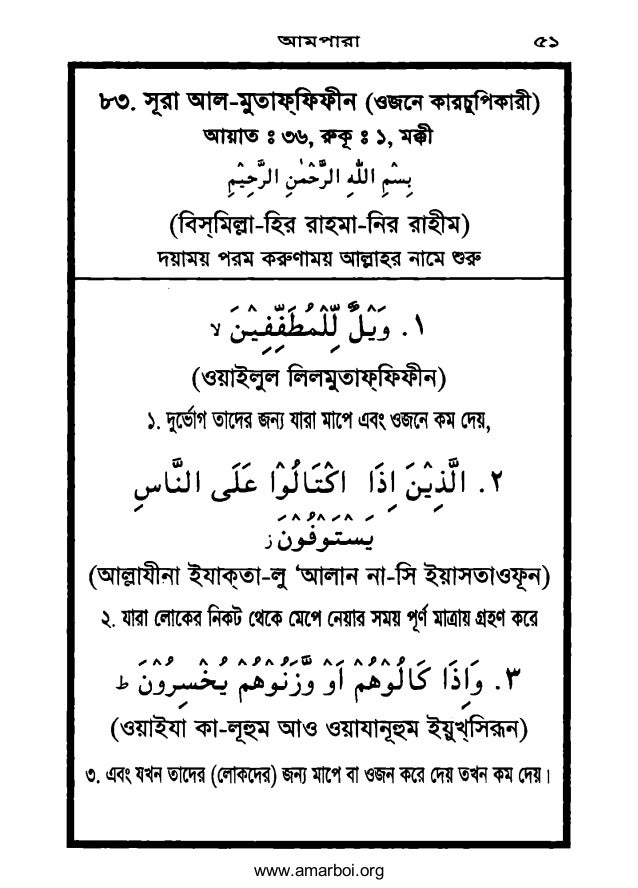 আমপারা ৫১
৮৩. সূরা আল-মুতাফ্ফিফীন (ওজনে কারচুপিকারী)
আয়াত ঃ ৩৬, রুকূ ঃ ১, মক্কী
بِسْمِ اللّٰهِ الرَّحْمٰنِ الرَّحِيْمِ
(বিস্মিল্লা-হির রাহমা-নির রাহীম)
দয়াময় পরম করুণাময় আল্লাহর নামে শুরু
١. وَيْلٌ لِّلْمُطَفِّفِيْنَ ۙ
(ওয়াইলুল লিলমুতাফ্ফিফীন)
১. দুর্ভোগ তাদের জন্য যারা মাপে এবং ওজনে কম দেয়,
٢. الَّذِيْنَ اِذَا اكْتَالُوْا عَلَى النَّاسِ
يَسْتَوْفُوْنَ ز
(আল্লাযীনা ইযাক্তা-লু ‘আলান না-সি ইয়াসতাওফূন)
২. যারা লোকের নিকট থেকে মেপে নেয়ার সময় পূর্ণ মাত্রায় গ্রহণ করে
٣. وَاِذَا كَالُوْهُمْ اَوْ وَّزَنُوْهُمْ يُخْسِرُوْنَ ط
(ওয়াইযা কা-লূহুম আও ওয়াযানূহুম ইয়ুখ্সিরূন)
৩. এবং যখন তাদের (লোকদের) জন্য মাপে বা ওজন করে দেয় তখন কম দেয়।
www.amarboi.org